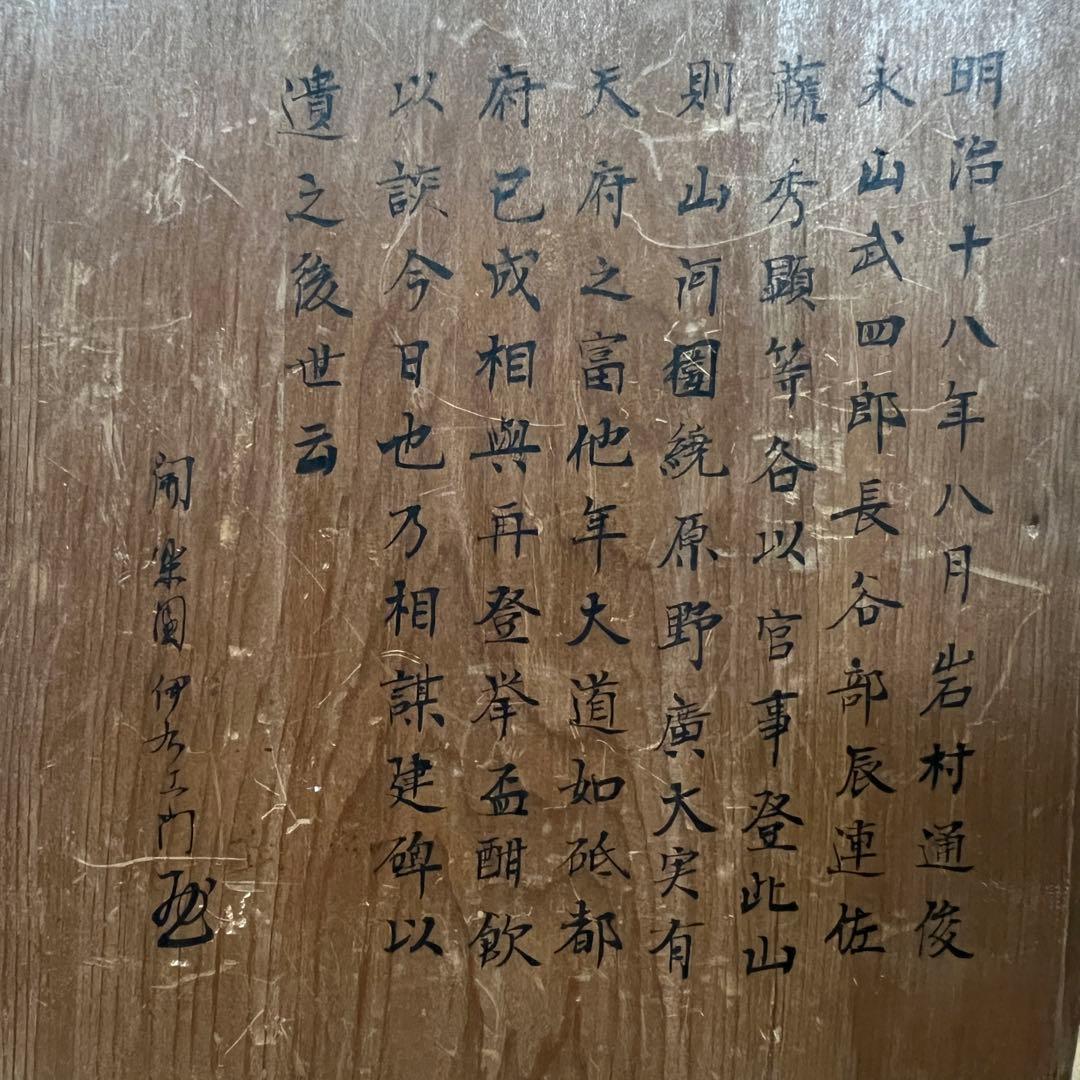 明治十八年八月岩村通俊
永山武四郎長谷部辰連佐
藤秀顕等各以官事登此山
則山河圍繞原野廣大実有
天府之富他年大道如砥都
府已成相與再登挙盃酣飲
以談今日也乃相謀建碑以
遺之後世云
開楽園伊右エ門